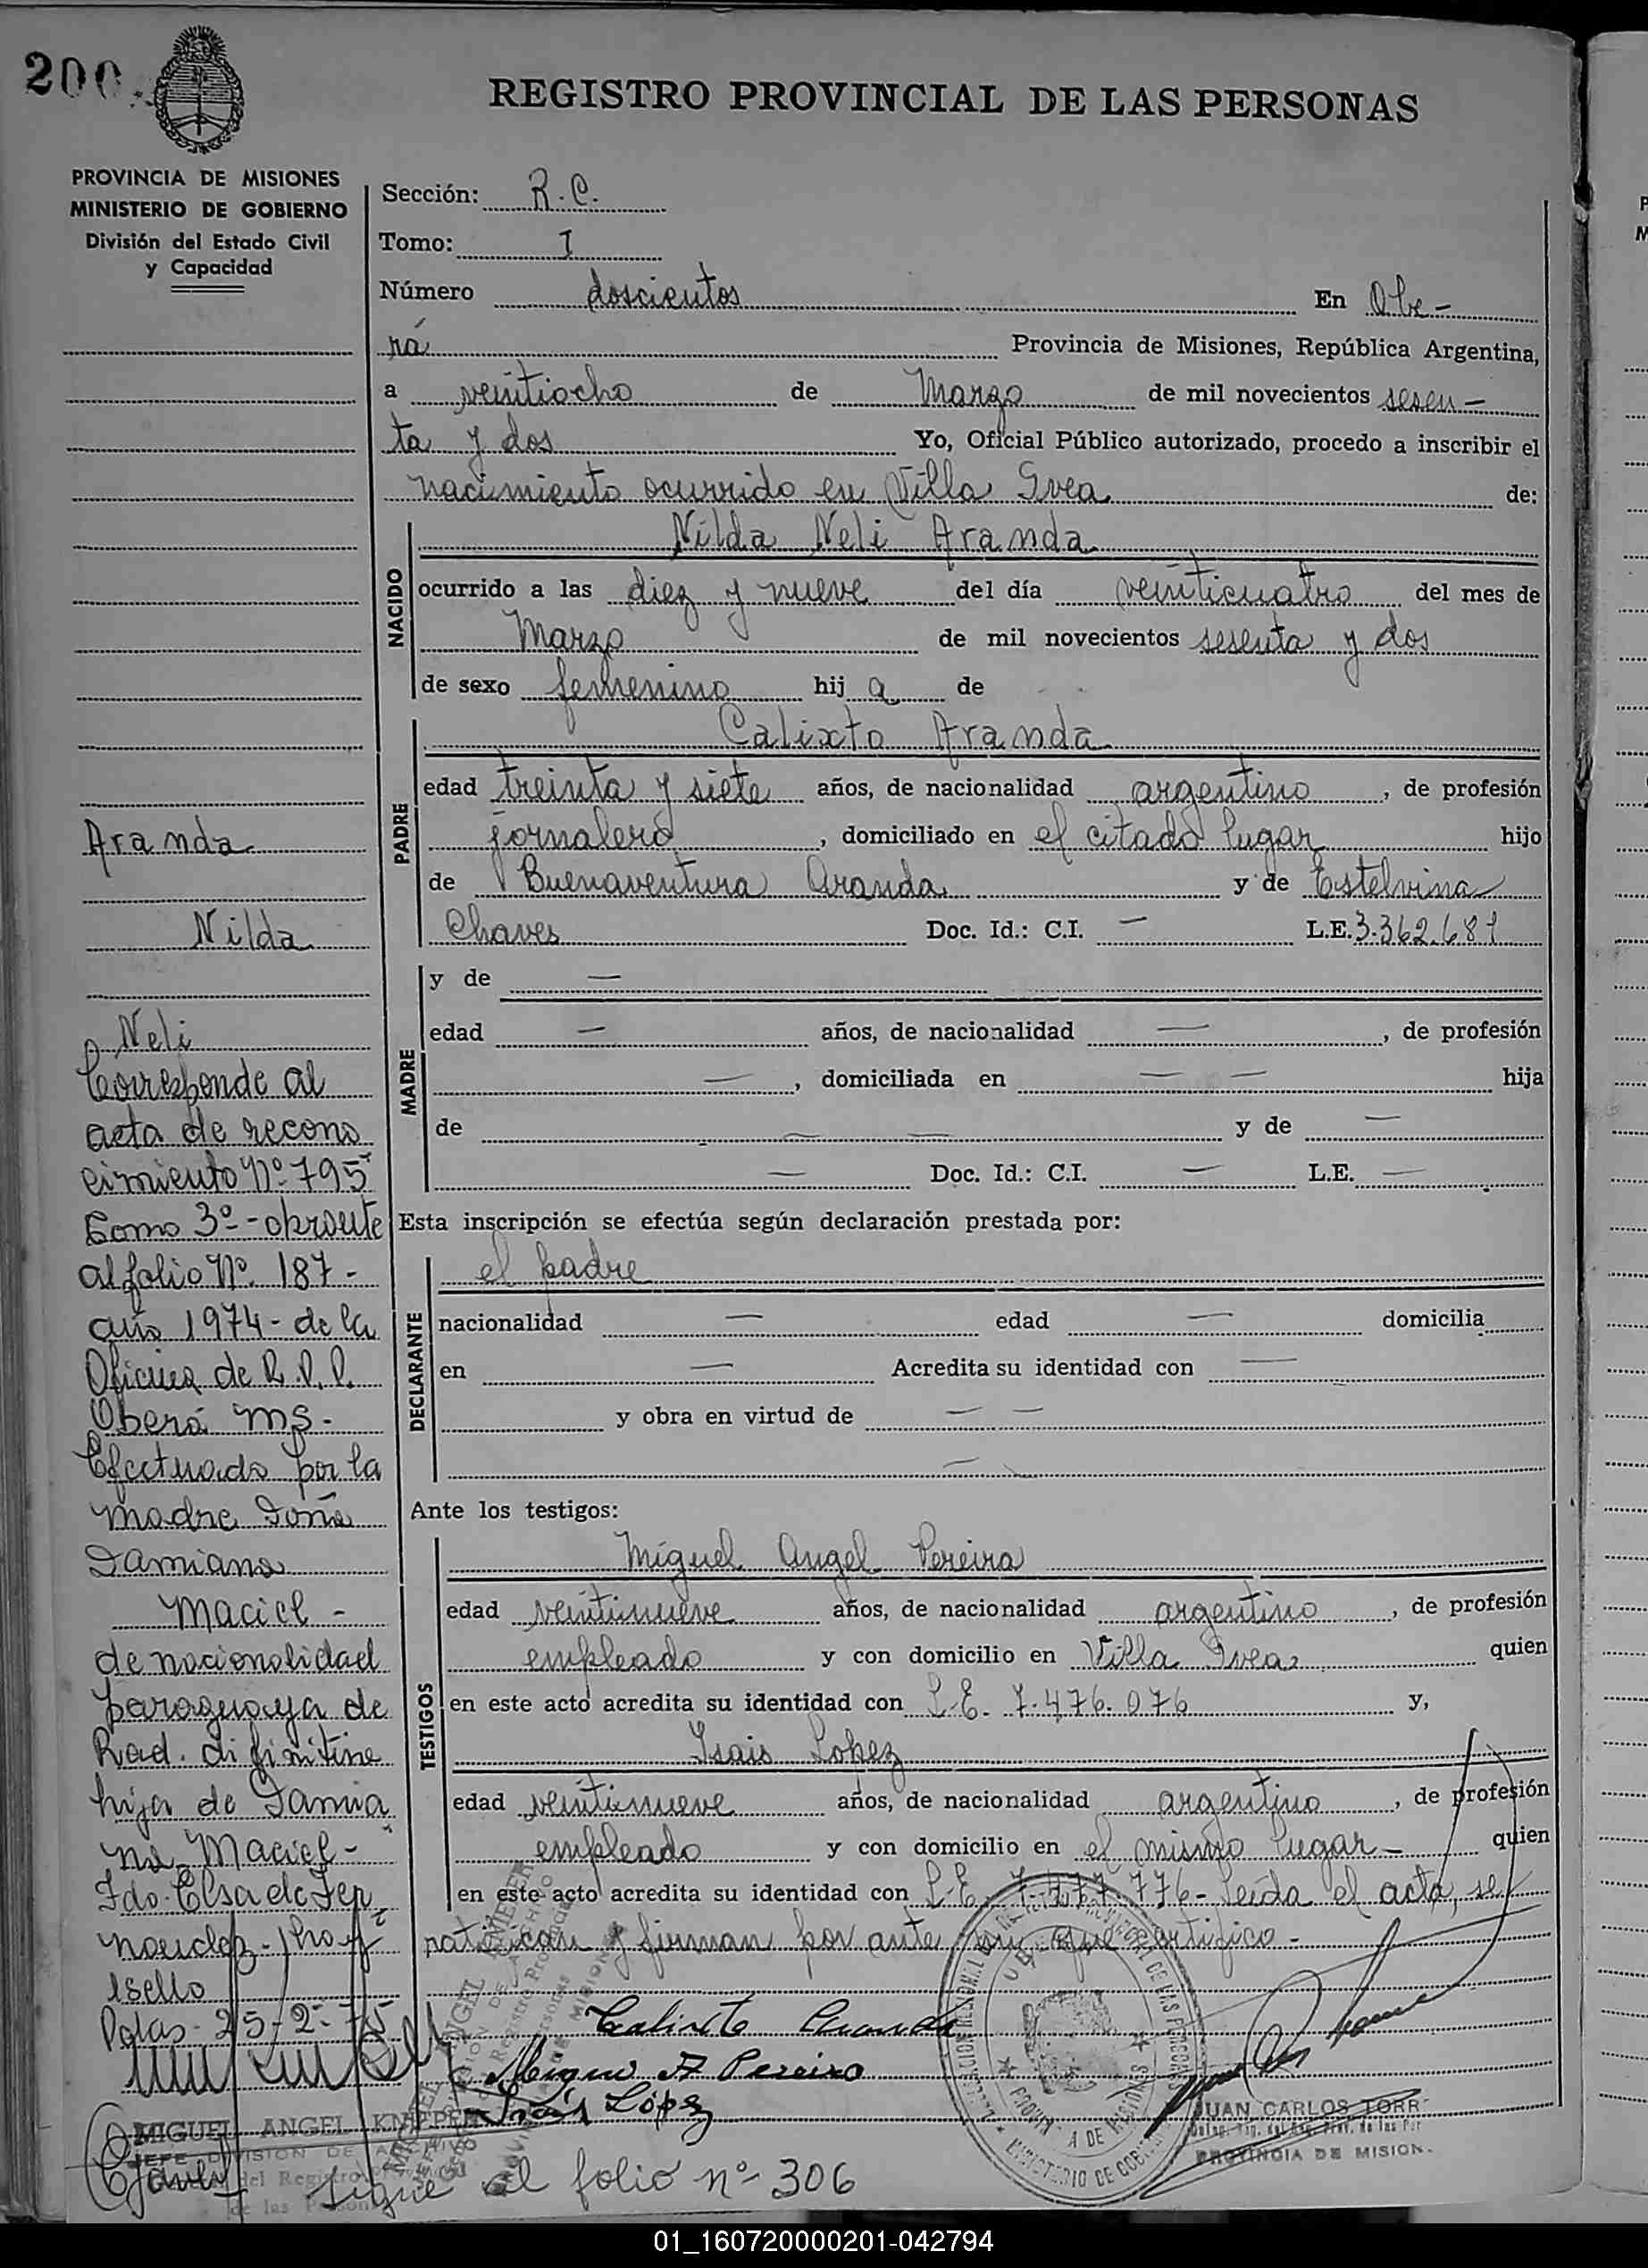 200
REGISTRO PROVINCIAL DE LAS PERSONAS
PROVINCIA DE MISIONES
MINISTERIO DE GOBIERNO
División del Estado Civil
y Capacidad
Sección: R. C.
Tomo: I
Número doscientos En Obe-
rá Provincia de Misiones, República Argentina,
a veintiocho de Marzo de mil novecientos sesen-
ta y dos Yo, Oficial Público autorizado, procedo a inscribir el
nacimiento ocurrido en Villa Svea de:
NACIDO
Nilda Neli Aranda
ocurrido a las diez y nueve del día veinticuatro del mes de
Marzo de mil novecientos sesenta y dos
de sexo femenino hij a de
PADRE
Calixto Aranda
edad treinta y siete años, de nacionalidad argentino, de profesión
jornalero, domiciliado en el citado lugar hijo
de Buenaventura Aranda y de Estelvina
Chaves Doc. Id.: C.I. — L.E. 3.362.681
MADRE
y de —
edad — años, de nacionalidad —, de profesión
—, domiciliada en — — hija
de — — y de —
— Doc. Id.: C.I. — L.E. —
Esta inscripción se efectúa según declaración prestada por:
DECLARANTE
el padre
nacionalidad — edad — domicilia
en — Acredita su identidad con —
y obra en virtud de — —
—
Ante los testigos:
TESTIGOS
Miguel Angel Pereira
edad veintinueve años, de nacionalidad argentino, de profesión
empleado y con domicilio en Villa Svea quien
en este acto acredita su identidad con L.E. 7.476.076 y,
Isais Lopez
edad veintinueve años, de nacionalidad argentino, de profesión
empleado y con domicilio en el mismo lugar- quien
en este acto acredita su identidad con L.E. 7.477.776- Leída el acta, se
ratifican y firman por ante mi que certifico-
Calixto Aranda
Miguel A Pereira
Isais López
JUAN CARLOS TORR
PROVINCIA DE MISION.
Aranda
Nilda
Neli
Corresponde al
acta de recono
cimiento Nº 795
Tomo 3º- obrante
al folio Nº. 187-
año 1974- de la
Oficina de R.P.P.
Oberá Ms.-
Efectuado por la
madre Doña
Damiana
Maciel-
de nacionalidad
paraguaya de
Rad. difinitine
hija de Damia
na Maciel-
Fdo. Elsa de Fer
nandez- hay
sello
Pdas- 25-2-75
MIGUEL ANGEL KNEPPER
JEFE DIVISION DE ARCHIVO
del Registro
de las Person
sigue al folio nº 306
01_160720000201-042794